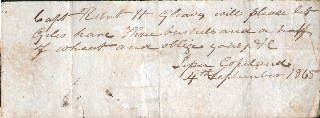 Capt Robt H Gleaves will please let
Giles have Five bushels and a half
of wheat and oblige yours &c
Copeland
4th September 1865